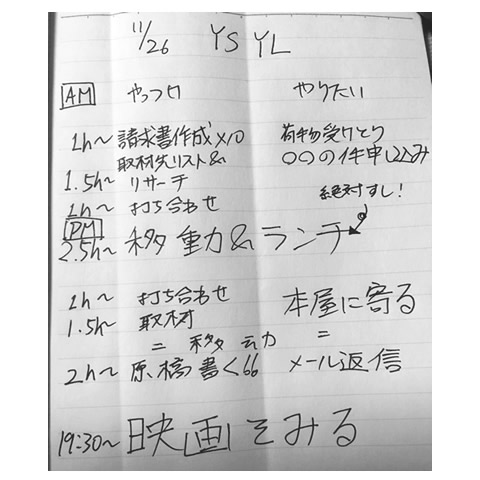 11/26 YS YL
AM やっつけ やりたい
1h〜 請求書作成×10 荷物受けとり
取材先リスト& 〇〇の件申し込み
1.5h〜 リサーチ
絶対すし!
1h〜 打ち合わせ
PM
2.5h〜 移動&ランチ
1h〜 打ち合わせ 本屋に寄る
1.5h〜 取材
= 移動 =
2h〜 原稿書く メール返信
19:30〜 映画をみる